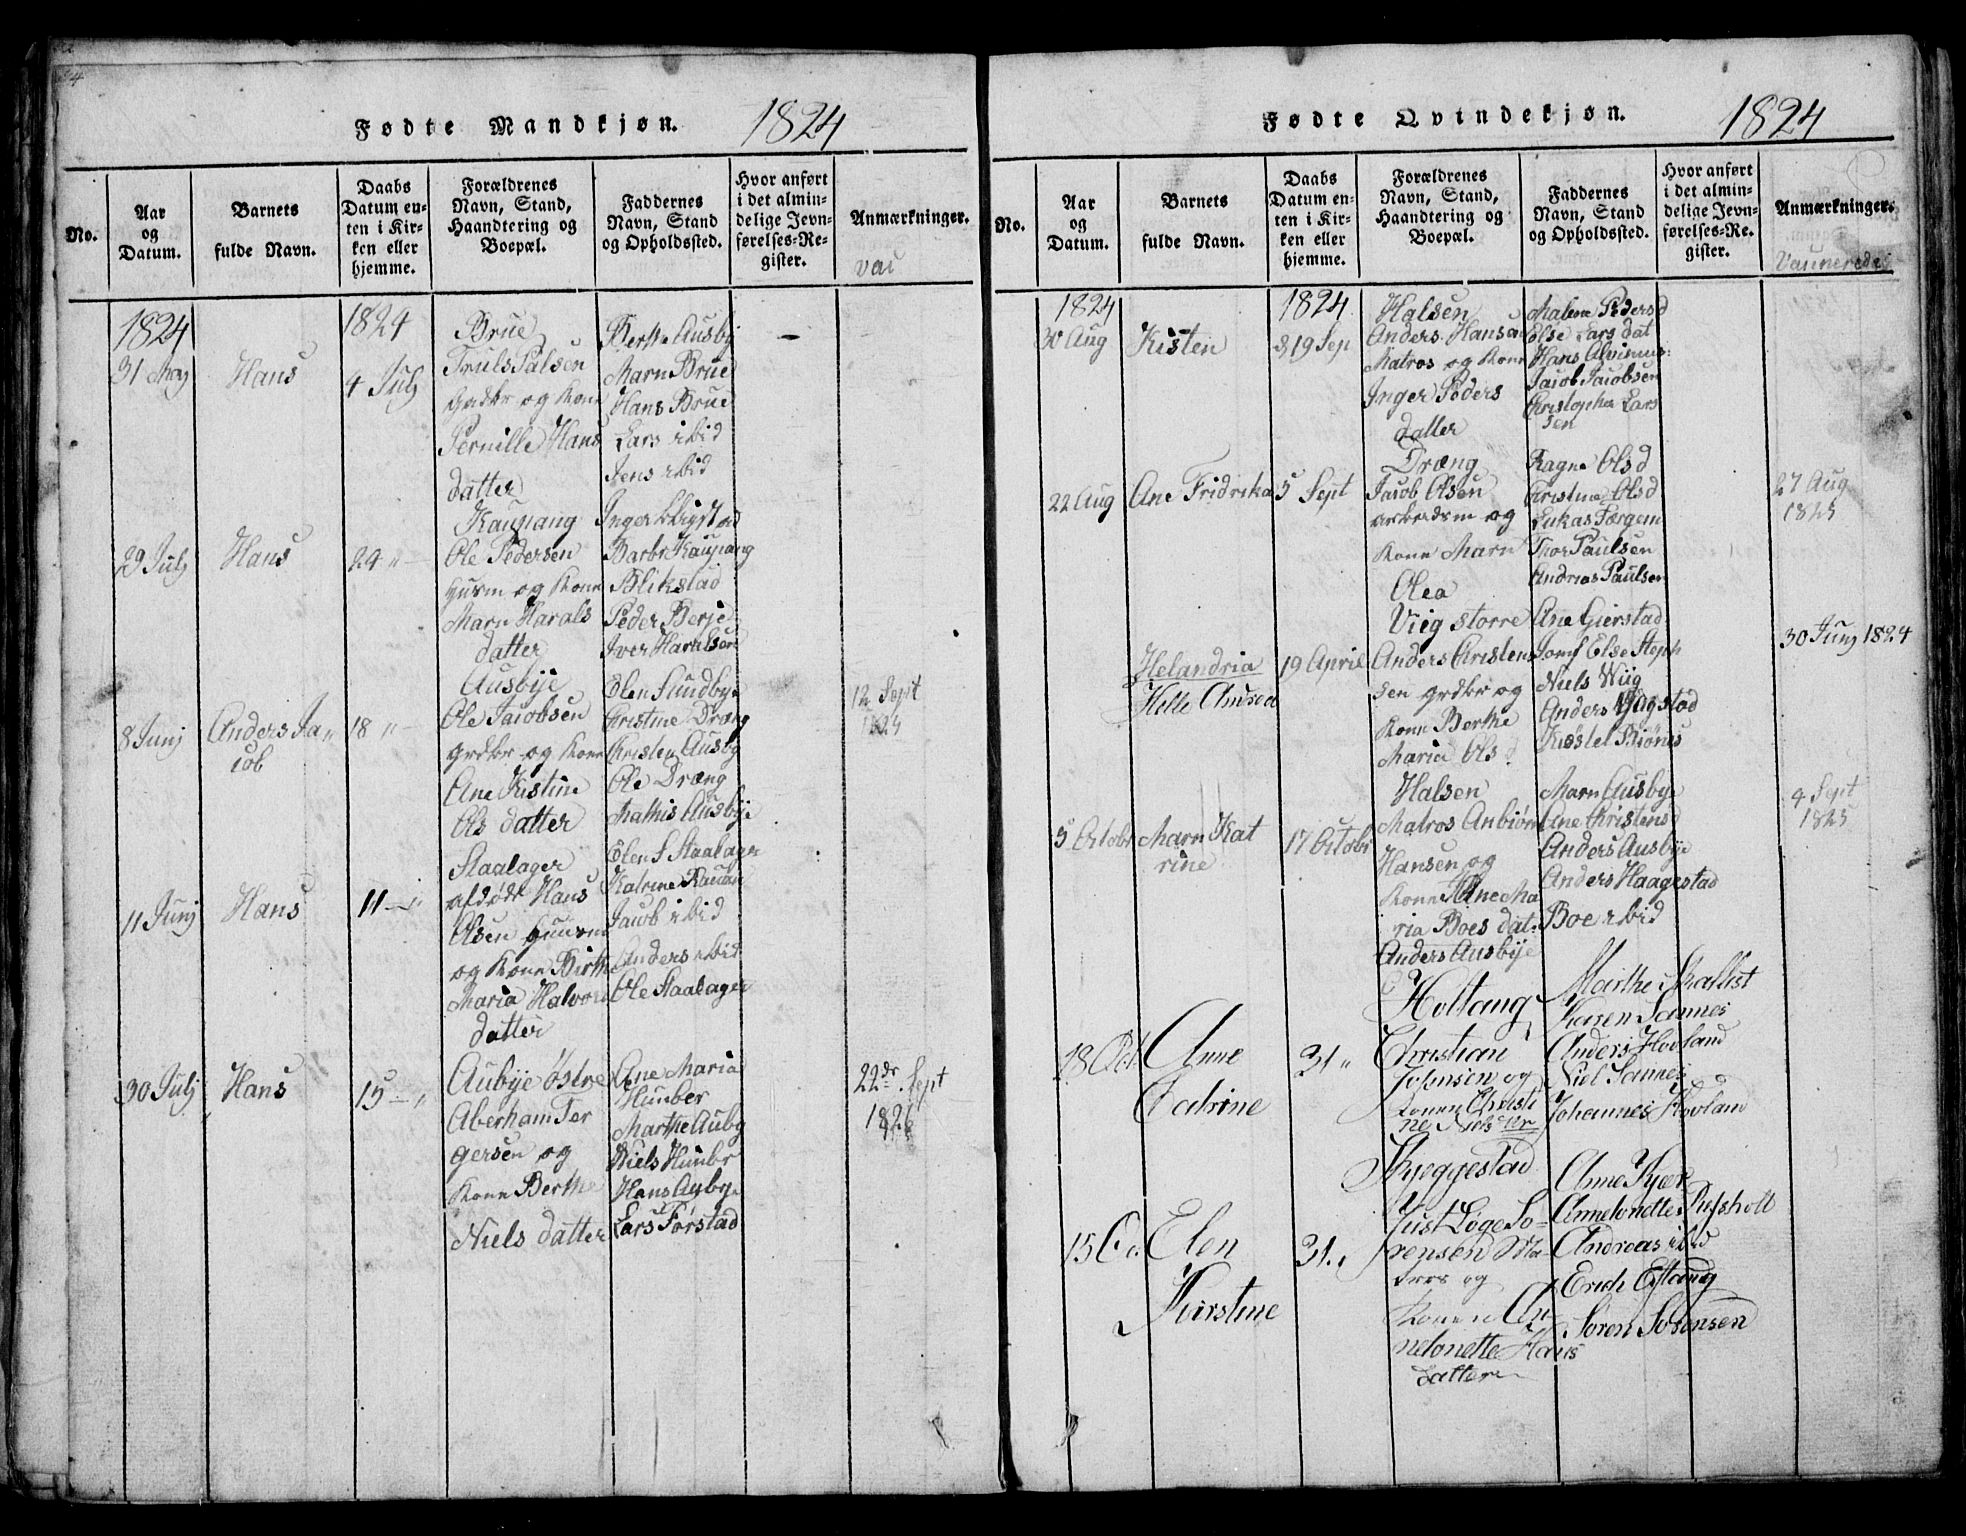 Fødte Mandkjøn. 1824
No.
Aar og Datum.
Barnets fulde Navn.
Daabs Datum enten i Kirken eller hjemme.
Forældrenes Navn, Stand, Haandtering og Boepæl.
Faddernes Navn, Stand og Opholdssted.
Hvor anført i det almindelige Jevnførelses-Register.
Anmærkninger.
1824
31 May
Hans
1824
4 Julj
Brue
Truls Palsen
grdbr og Kone
Pernille Hans
datter
Berthe Ausby
Marn Brue
Hans Brue
Lars ibid
Jens ibid
29 Julj
Hans
29 "
Kaupang
Ole Pedersen
husm og Kone
Marn Harals
datter
Inger
Barbr Kaupang
Blikstad
Peder Berje
Iver Haralsen
8 Junj
Anders Ja
cob
18 "
Ausbye
Ole Jacobsen
grdbr og Kone
Ane Kistine
Ols datter
Elen Sundbye
Christine Dræng
Christen Ausby
Ole Dræng
Mathis Ausbye
12 Sept
11 Junj
Hans
11
Staalager
afdøde Hans
Olsen
og Kone Birthe
Maria Halvors
datter
Elen S Staalager
Katrine
Jacob ibid
Anders ibid
Ole Staalager
30 Julj
Hans
15
Aubye østre
Aberham Ter
gersen og
Kone Berthe
Niels datter
Ane Maria
Hunber
Marthe Auby
Niels Hunbr
Hans Aubye
Lars Førstad
22de Sept
1826
Fødte Qvindekjøn. 1824
No.
Aar og Datum.
Barnets fulde Navn.
Daabs Datum enten i Kirken eller hjemme.
Forældrenes Navn, Stand, Haandtering og Boepæl.
Faddernes Navn, Stand og Opholdssted.
Hvor anført i det almindelige Jevnførelses-Register.
Anmærkninger.
1824
30 Aug
Kisten
1824
19 Sep
Halsen
Anders Hansen
Matros og Kone
Inger Peders
datter
Malene Pedersd
Else Lars dat
Hans
Jacob Jacobsen
Christopher Lars
sen
22 Aug
Ane Fridrika
5 Sept
Dræng
Jacob Olsen
arbeidsm og
Kone Marn
Olea
Ragne Olsd
Christine Olsd
Lukas
Thor Paulsen
Andrias Paulsen
27 Aug
1825
Helandria
19 April
Viig storre
Anders Christen
sen grdbr og
Kone Berthe
Maria Ols d
Ane Gierstad
Jomf Else Steph
Niels Wiig
Anders
Kiøstel Biønes
30 Junj 1824
5 Octobr
Marn Kat
rine
17 Octobr
Halsen
Matros Anbiørn
Hansen og
Kone Ane Ma
ria Boes dat.
Anders Ausbye
Marn Ausbye
Ane Christensd
Anders Ausbye
Anders Haagestad
Boe ibid
4 Sept
1825
18 Oct
Anne
Catrine
31 "
Holtang
Christian
og
Konen Christi
ne Niels dtr
Marthe Skallist
Karen Sannes
Anders Hovland
Niel Sannes
Johannes Hovland
15 Oc.
Elen
Kirstine
31 "
Skieggestad
Just Løge So-
rensen Ma-
tros og
Konen An-
netonette Hans
datter
Anne
Annetonette
Andreas ibid
Erich Eftang
Soren Sorensen